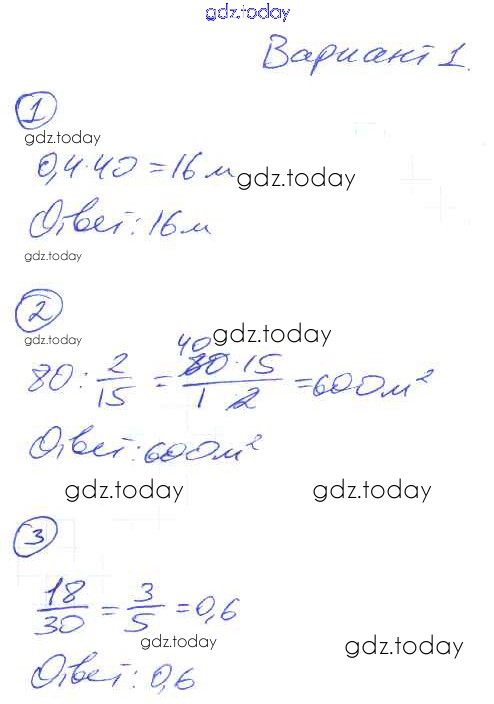 gdz.today
Вариант 1.
1
gdz.today
0,4·40=16м
gdz.today
Ответ: 16м
gdz.today
2
gdz.today
gdz.today
80 : 2/15 = 40 80·15/1 2 = 600м²
Ответ: 600м²
gdz.today gdz.today
3
18/30 = 3/5 = 0,6
gdz.today gdz.today
Ответ: 0,6